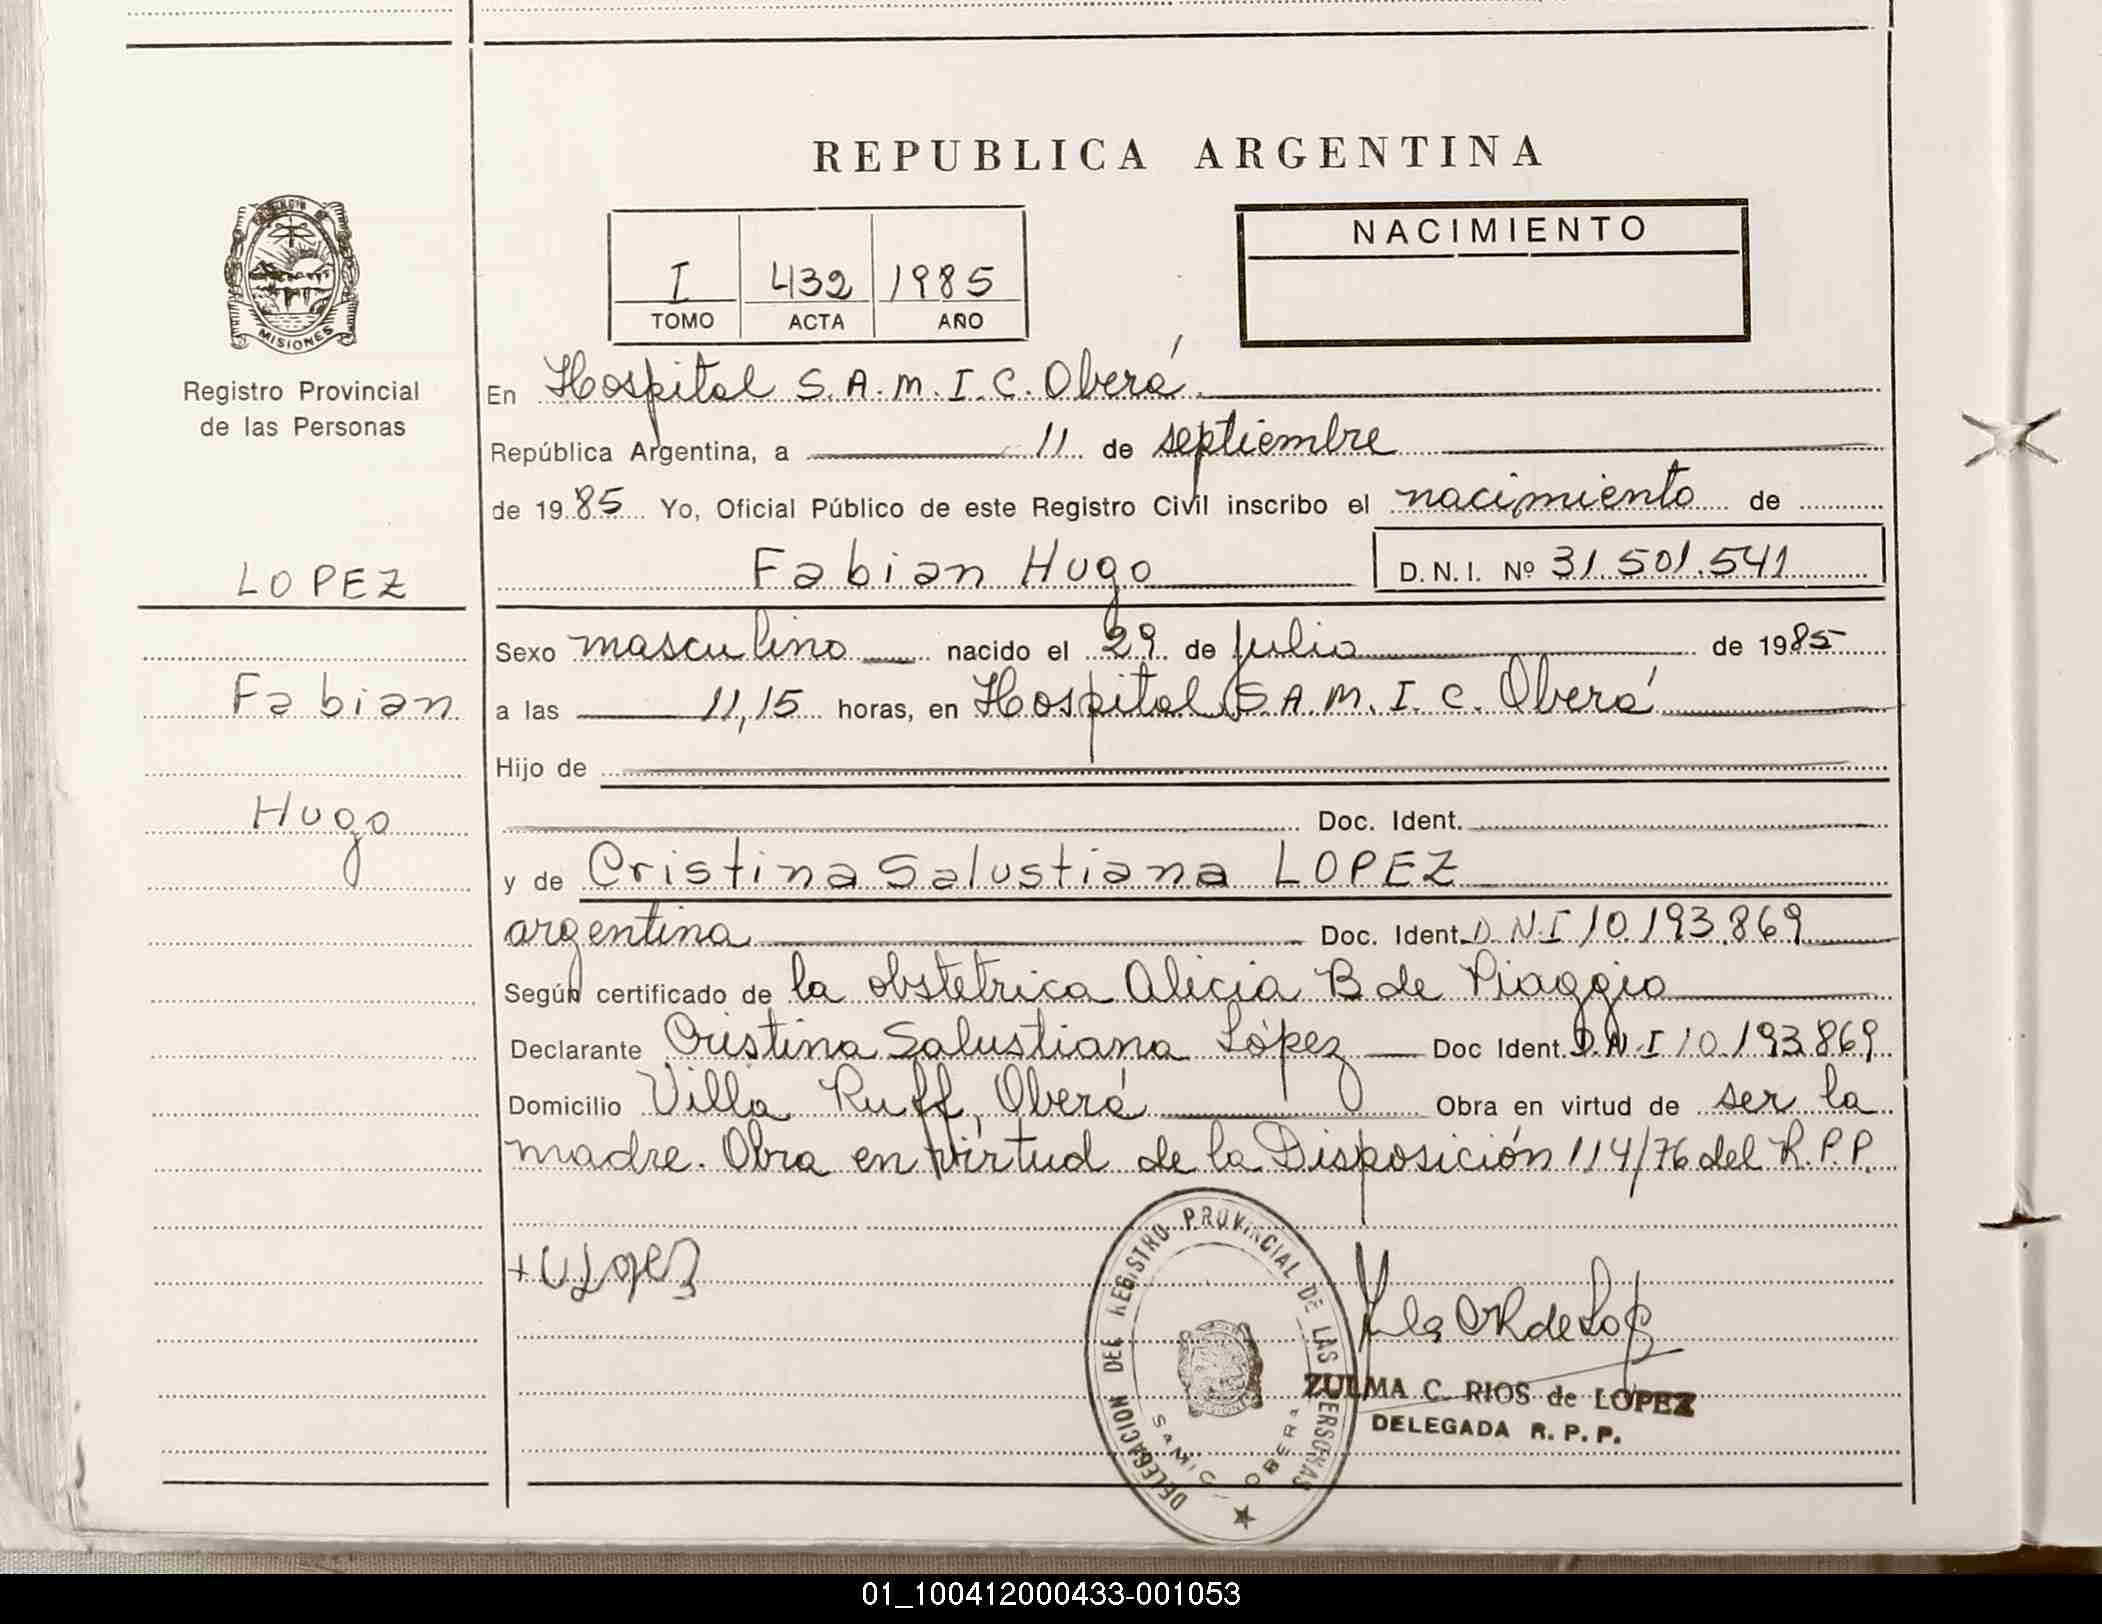 REPUBLICA ARGENTINA
MISIONES
Registro Provincial
de las Personas
I 432 1985
TOMO ACTA AÑO
NACIMIENTO
En Hospital S.A.M.I.C. Oberá
República Argentina, a 11 de septiembre
de 1985 Yo, Oficial Público de este Registro Civil inscribo el nacimiento de
LOPEZ
Fabian Hugo D.N.I. Nº 31.501.541
Sexo masculino nacido el 29 de julio de 1985
Fabian
a las 11,15 horas, en Hospital S.A.M.I.C. Oberá
Hijo de
Hugo
Doc. Ident.
y de Cristina Salustiana LOPEZ
argentina Doc. Ident. D.N.I 10.193.869
Según certificado de la obstetrica Alicia B de Piaggio
Declarante Cristina Salustiana López Doc Ident. D.N.I 10.193869
Domicilio Villa Ruff, Oberá Obra en virtud de ser la
madre. Obra en virtud de la Disposición 114/76 del R.P.P.
DELEGACION DEL REGISTRO PROVINCIAL DE LAS PERSONAS
SAMIC - OBERA
ZULMA C. RIOS de LOPEZ
DELEGADA R. P. P.
01_100412000433-001053